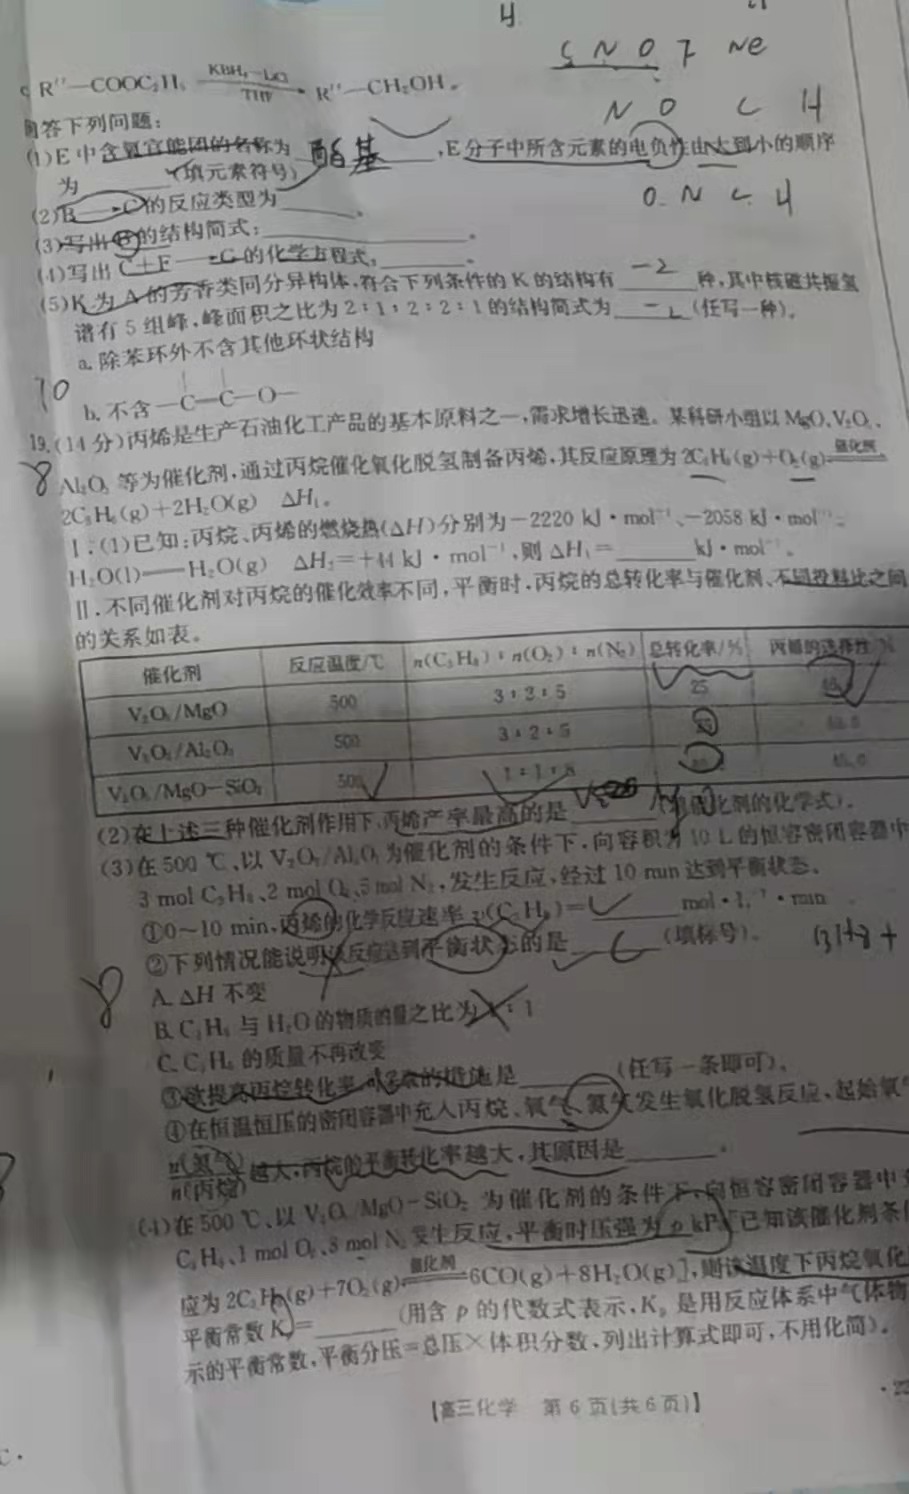 4
C N O F Ne
R''—COOC₂H₅ KBH₄—LiCl THF R''—CH₂OH。
N O C H
回答下列问题:
(1)E中含氧官能团的名称为 酯基 ,E分子中所含元素的电负性由大到小的顺序
为______(填元素符号)
O N C H
(2)B→C的反应类型为______。
(3)写出 的结构简式:______。
(4)写出C+F→G的化学方程式:______。
(5)K为A的芳香类同分异构体,符合下列条件的K的结构有______种,其中核磁共振氢
谱有5组峰,峰面积之比为2:1:2:2:1的结构简式为______(任写一种)。
a. 除苯环外不含其他环状结构
10
b. 不含—C—C—O—
19.(14分)丙烯是生产石油化工产品的基本原料之一,需求增长迅速。某科研小组以MgO、V₂O₅、
8
Al₂O₃等为催化剂,通过丙烷催化氧化脱氢制备丙烯,其反应原理为2C₃H₈(g)+O₂(g)催化剂
2C₃H₆(g)+2H₂O(g) ΔH₁。
Ⅰ.(1)已知:丙烷、丙烯的燃烧热(ΔH)分别为-2220 kJ·mol⁻¹、-2058 kJ·mol⁻¹;
H₂O(l)══H₂O(g) ΔH₂=+44 kJ·mol⁻¹,则ΔH₁=______kJ·mol⁻¹。
Ⅱ.不同催化剂对丙烷的催化效率不同,平衡时,丙烷的总转化率与催化剂、不同投料比之间
的关系如表。
催化剂 反应温度/℃ n(C₃H₈):n(O₂):n(N₂) 总转化率/% 丙烯的选择性/%
V₂O₅/MgO 500 3:2:5 25
V₂O₅/Al₂O₃ 500 3:2:5
V₂O₅/MgO-SiO₂ 500 1:1:8
(2)在上述三种催化剂作用下,丙烯产率最高的是______(填催化剂的化学式)。
(3)在500 ℃、以V₂O₅/Al₂O₃为催化剂的条件下,向容积为10 L的恒容密闭容器中
3 mol C₃H₈、2 mol O₂、5 mol N₂,发生反应,经过10 min达到平衡状态。
①0~10 min,丙烯的化学反应速率v(C₃H₆)=______mol·L⁻¹·min
②下列情况能说明该反应达到平衡状态的是 C (填标号)。
A. ΔH不变
8
B. C₃H₆与H₂O的物质的量之比为1:1
C. C₃H₈的质量不再改变
③欲提高丙烷转化率,可采取的措施是______(任写一条即可)。
④在恒温恒压的密闭容器中充入丙烷、氧气、氮气发生氧化脱氢反应,起始氧气
n(氮气)/n(丙烷)越大,丙烷的平衡转化率越大,其原因是______。
(4)在500 ℃、以V₂O₅/MgO-SiO₂为催化剂的条件下,向恒容密闭容器中
C₃H₈、1 mol O₂、8 mol N₂发生反应,平衡时压强为p kPa[已知该催化剂条件
应为2C₃H₈(g)+7O₂(g)催化剂6CO(g)+8H₂O(g)],则该温度下丙烷氧化
平衡常数Kₚ=______(用含p的代数式表示,Kₚ是用反应体系中气体物
示的平衡常数,平衡分压=总压×体积分数,列出计算式即可,不用化简)。
【高三化学 第6页(共6页)】
·22